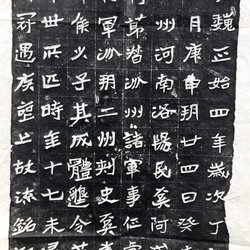 魏正始四年歲次丁
月庚申朔廿四日癸
州河南洛陽民阿
汾州諸軍事征
軍汾朔二州刺史
侯少子其成體
世匹時年十七未
遇疾上故流銘